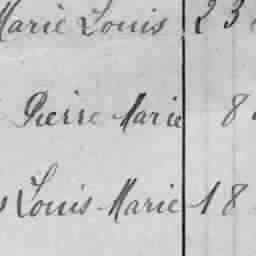 Marie Louis 23
Pierre Marie 8
s Louis Marie 18